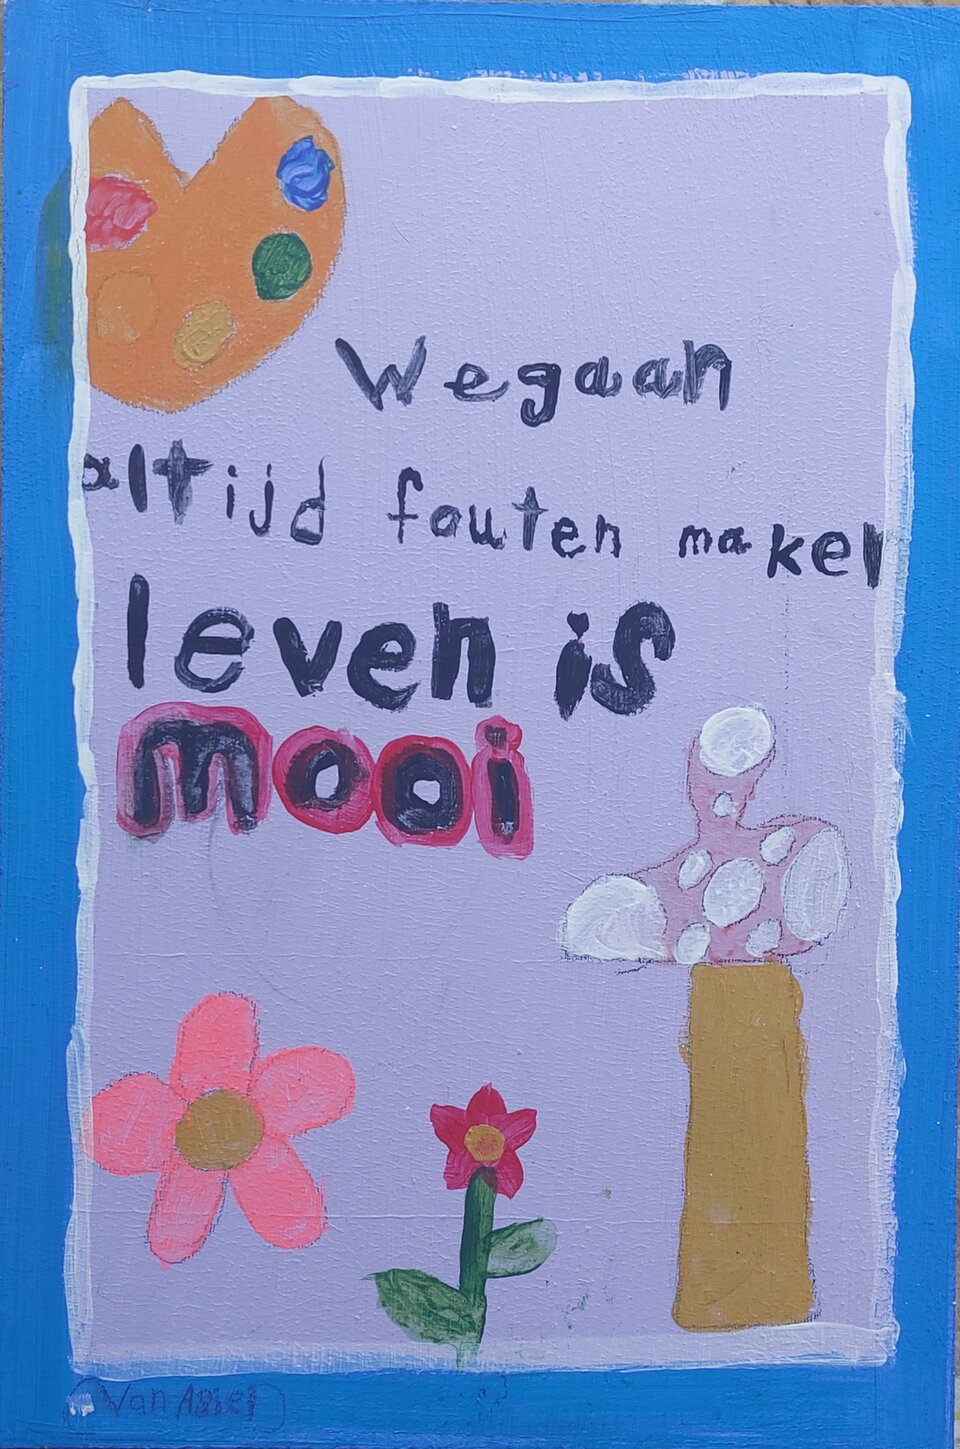 We gaan
altijd fouten maken
leven is
mooi
Van